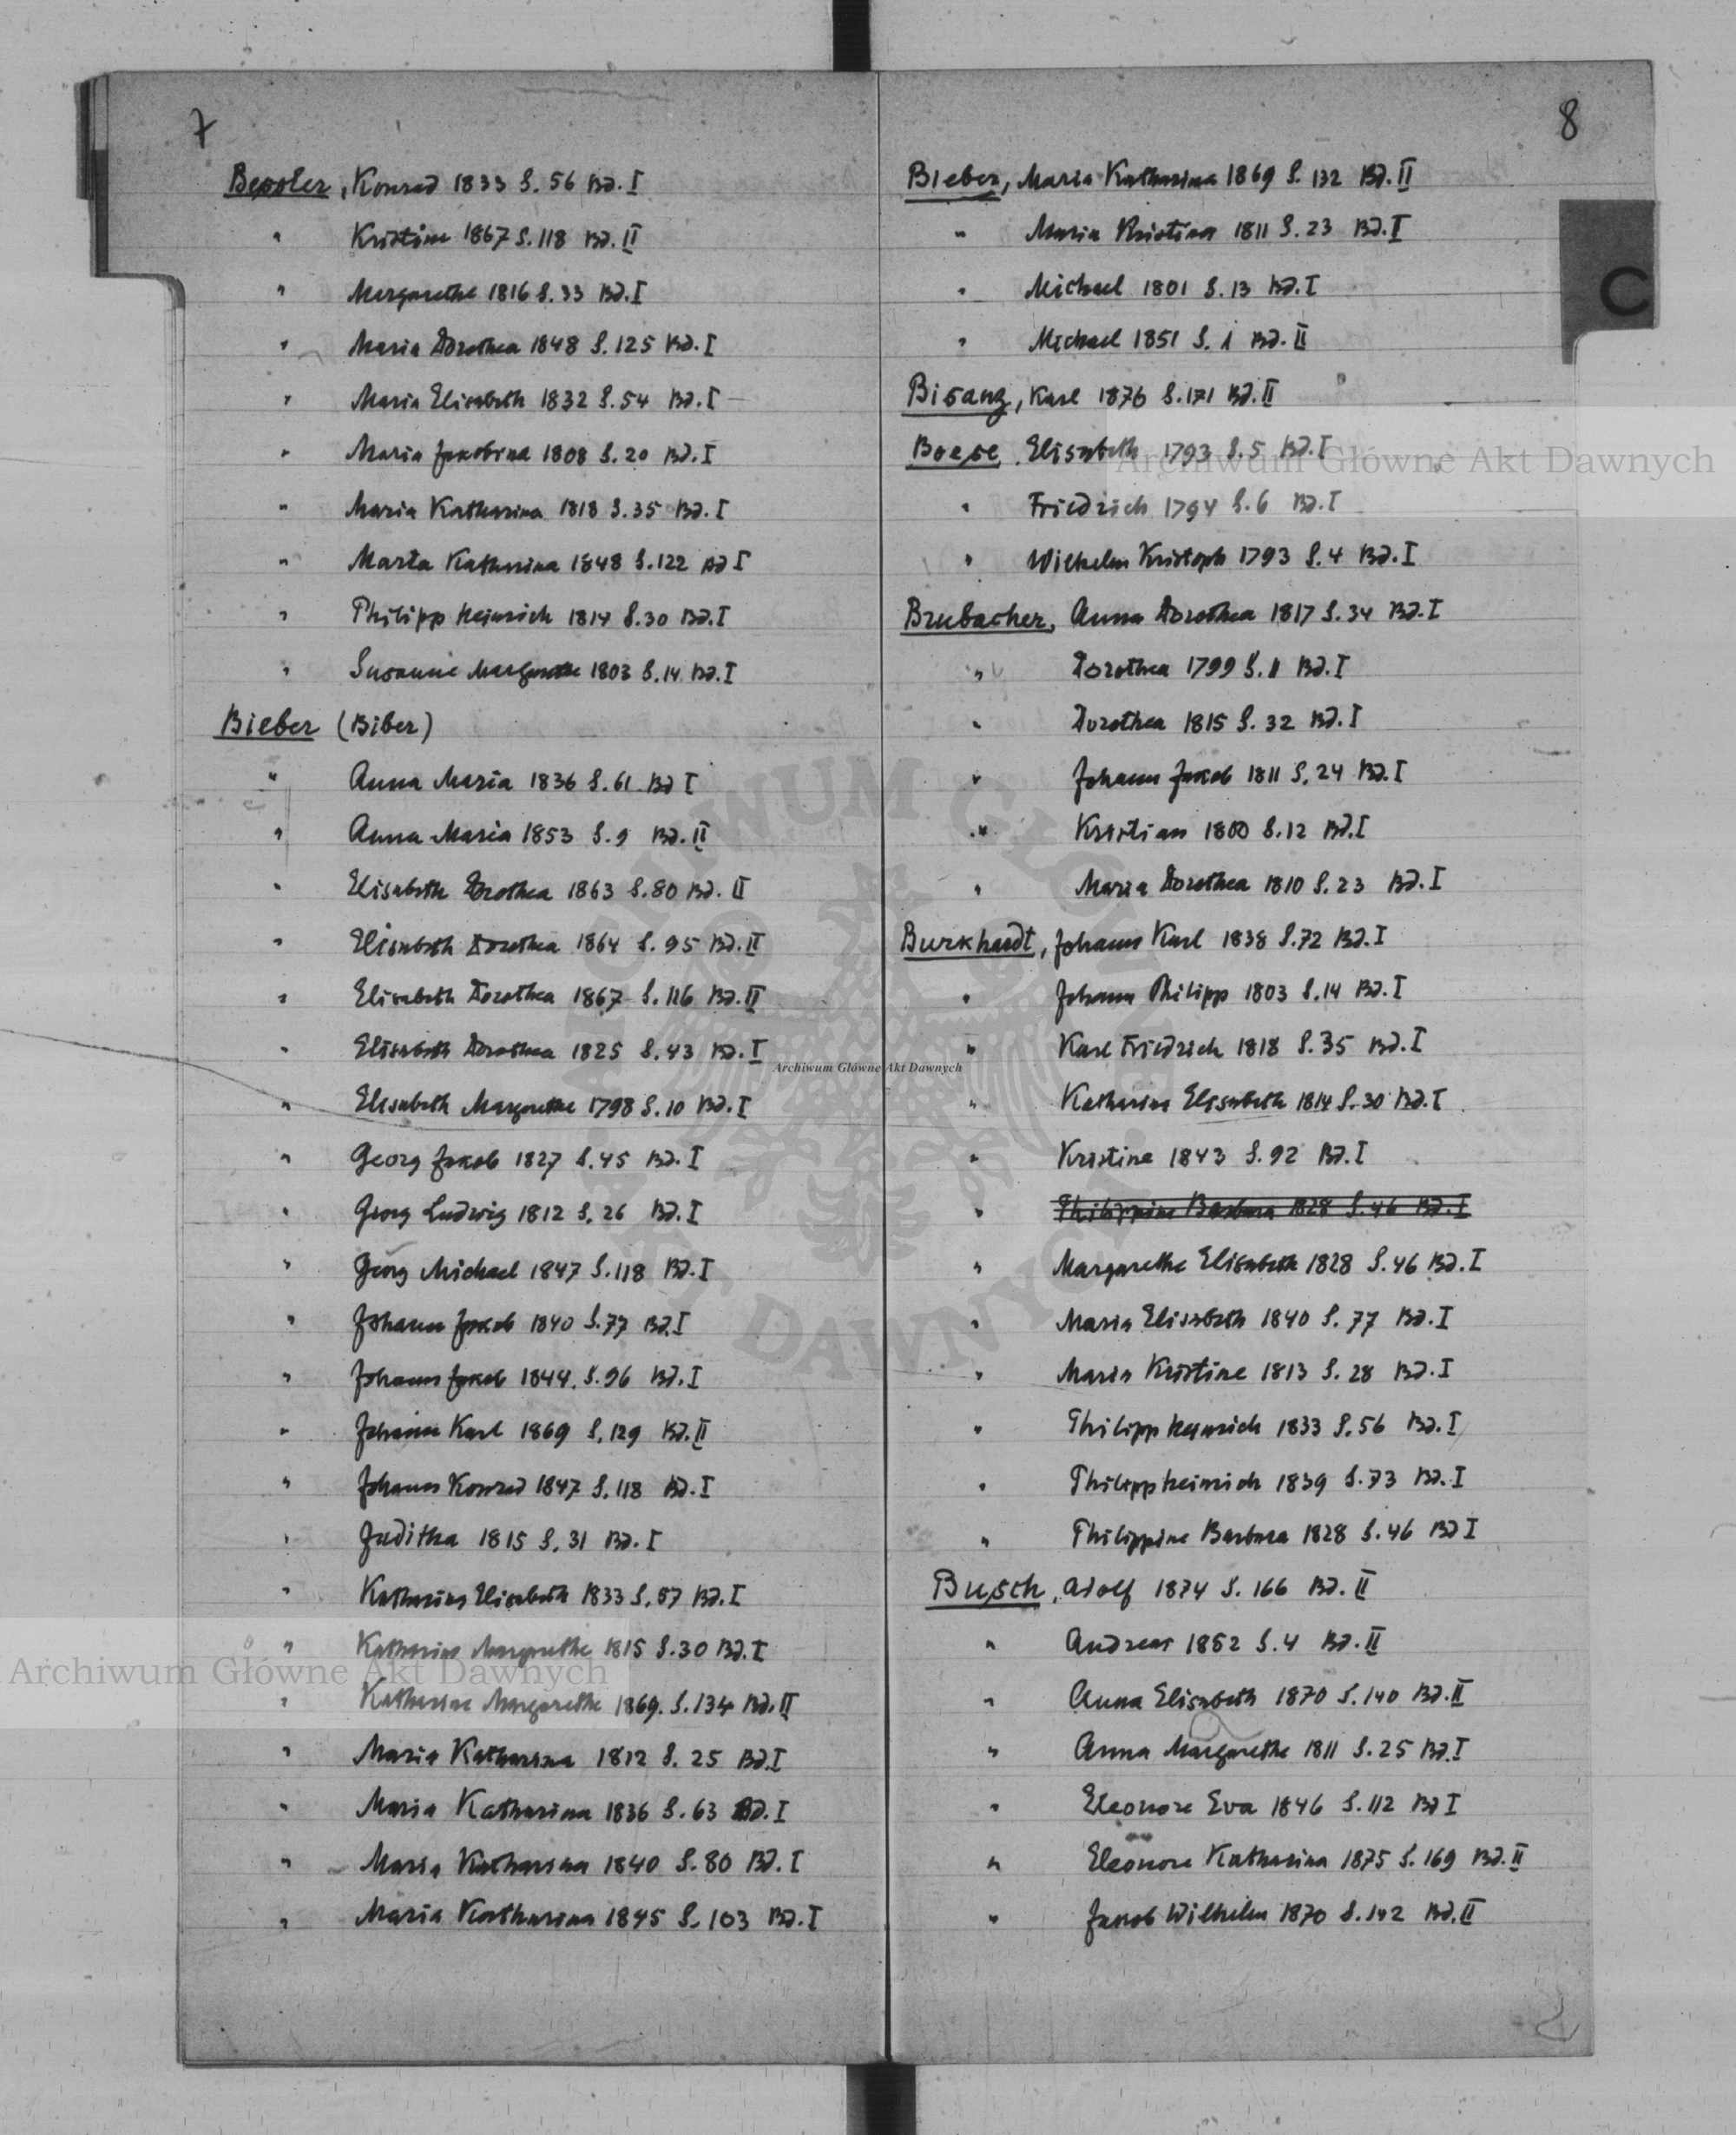 7
Bessler, Konrad 1833 S. 56 Bd. I
" Kristine 1867 S. 118 Bd. II
" Margarethe 1816 S. 33 Bd. I
" Maria Dorothea 1848 S. 125 Bd. I
" Maria Elisabeth 1832 S. 54 Bd. I
" Maria Jakobina 1808 S. 20 Bd. I
" Maria Katharina 1818 S. 35 Bd. I
" Maria Katharina 1848 S. 122 Bd I
" Philipp Heinrich 1814 S. 30 Bd. I
" Susanne Margarethe 1803 S. 14 Bd. I
Bieber (Biber)
" Anna Maria 1836 S. 61 Bd I
" Anna Maria 1853 S. 9 Bd. II
" Elisabeth Dorothea 1863 S. 80 Bd. II
" Elisabeth Dorothea 1864 S. 95 Bd. II
" Elisabeth Dorothea 1867 S. 116 Bd. II
" Elisabeth Dorothea 1825 S. 43 Bd. I
" Elisabeth Margarethe 1798 S. 10 Bd. I
" Georg Jakob 1827 S. 45 Bd. I
" Georg Ludwig 1812 S. 26 Bd. I
" Georg Michael 1847 S. 118 Bd. I
" Johann Jakob 1840 S. 77 Bd. I
" Johann Jakob 1844. S. 96 Bd. I
" Johann Karl 1869 S. 129 Bd. II
" Johann Konrad 1847 S. 118 Bd. I
" Juditha 1815 S. 31 Bd. I
" Katharina Elisabeth 1833 S. 57 Bd. I
" Katharina Margarethe 1815 S. 30 Bd. I
" Katharina Margarethe 1869. S. 134 Bd. II
" Maria Katharina 1812 S. 25 Bd. I
" Maria Katharina 1836 S. 63 Bd. I
" Maria Katharina 1840 S. 80 Bd. I
" Maria Katharina 1845 S. 103 Bd. I
8
C
Bieber, Maria Katharina 1869 S. 132 Bd. II
" Maria Kristina 1811 S. 23 Bd. I
" Michael 1801 S. 13 Bd. I
" Michael 1851 S. 1 Bd. II
Bisang, Karl 1876 S. 171 Bd. II
Boese, Elisabeth 1793 S. 5 Bd. I
" Friedrich 1794 S. 6 Bd. I
" Wilhelm Kristoph 1793 S. 4 Bd. I
Brubacher, Anna Dorothea 1817 S. 34 Bd. I
" Dorothea 1799 S. 11 Bd. I
" Dorothea 1815 S. 32 Bd. I
" Johann Jakob 1811 S. 24 Bd. I
" Kristian 1800 S. 12 Bd. I
" Maria Dorothea 1810 S. 23 Bd. I
Burkhardt, Johann Karl 1838 S. 72 Bd. I
" Johann Philipp 1803 S. 14 Bd. I
" Karl Friedrich 1818 S. 35 Bd. I
" Katharina Elisabeth 1814 S. 30 Bd. I
" Kristine 1843 S. 92 Bd. I
" Philippine Barbara 1828 S. 46 Bd. I
" Margarethe Elisabeth 1828 S. 46 Bd. I
" Maria Elisabeth 1840 S. 77 Bd. I
" Maria Kristine 1813 S. 28 Bd. I
" Philipp Heinrich 1833 S. 56 Bd. I
" Philipp Heinrich 1839 S. 73 Bd. I
" Philippine Barbara 1828 S. 46 Bd I
Busch, Adolf 1874 S. 166 Bd. II
" Andreas 1852 S. 4 Bd. II
" Anna Elisabeth 1870 S. 140 Bd. II
" Anna Margarethe 1811 S. 25 Bd. I
" Eleonore Eva 1846 S. 112 Bd I
" Eleonore Katharina 1875 S. 169 Bd. II
" Jakob Wilhelm 1870 S. 142 Bd. II
Archiwum Główne Akt Dawnych
Archiwum Główne Akt Dawnych
Archiwum Główne Akt Dawnych
ARCHIWUM GŁÓWNE AKT DAWNYCH